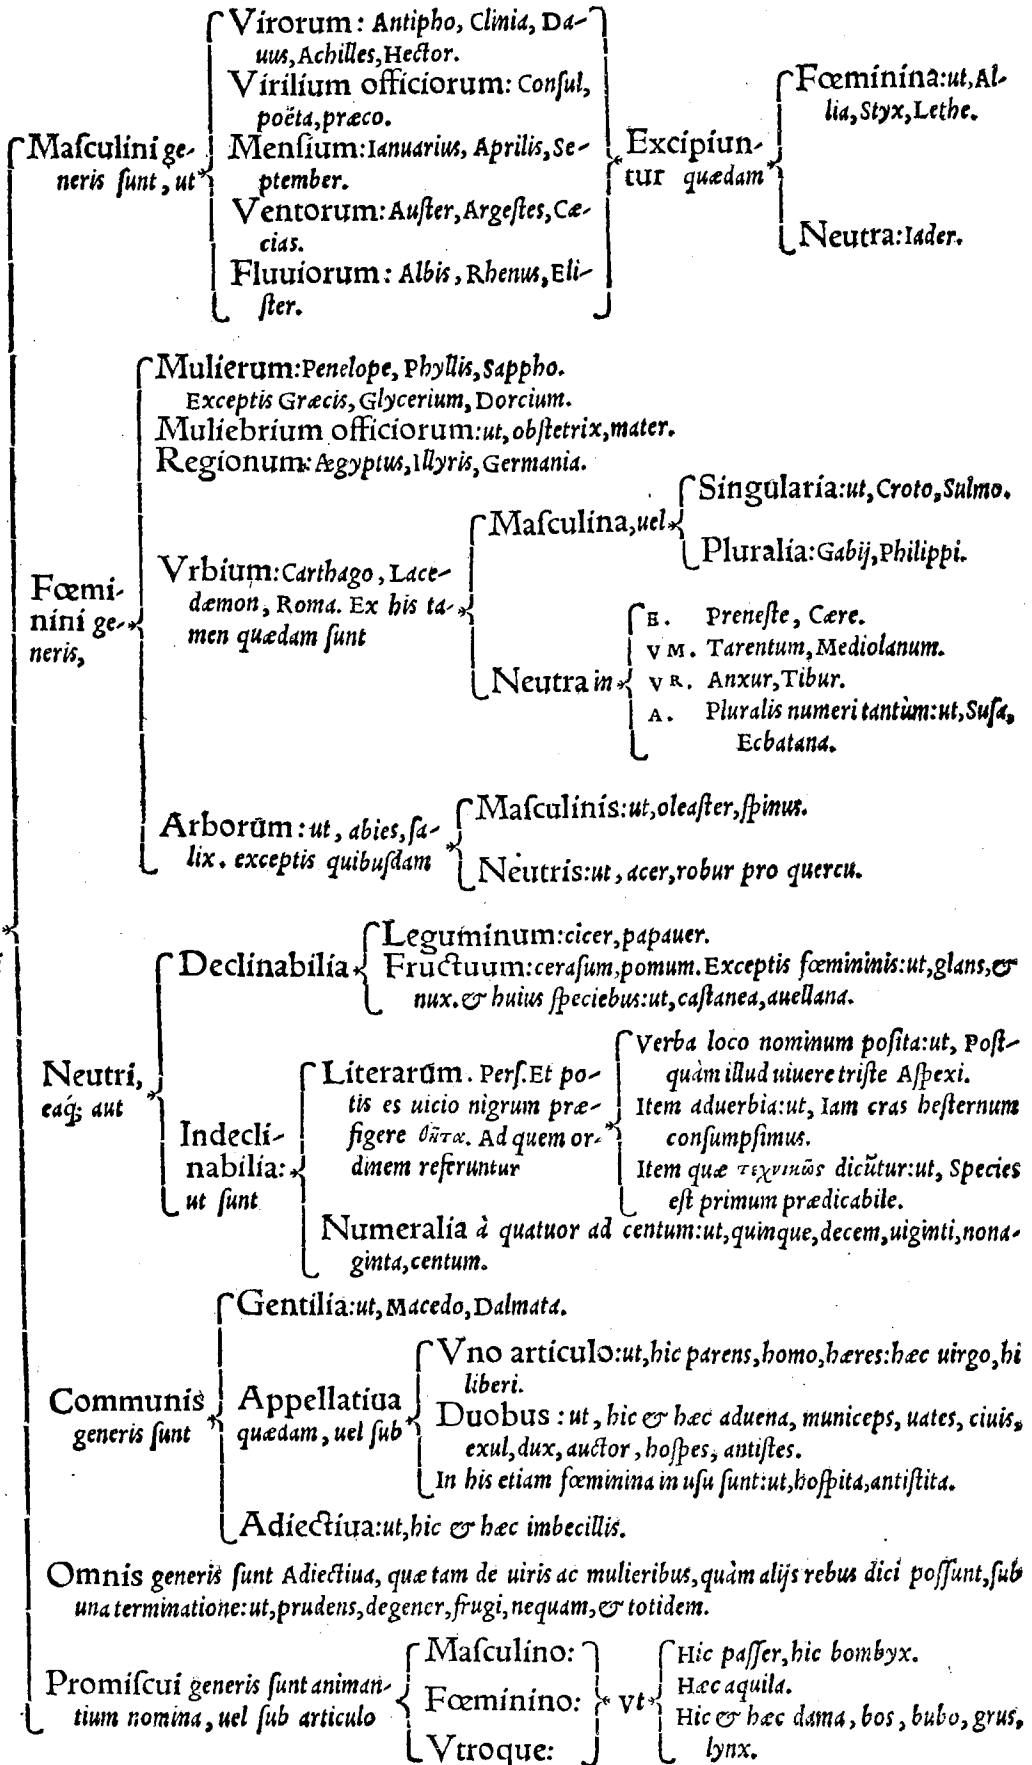 Virorum: Antipho, Clinia, Da-
uus, Achilles, Hector.
Virilium officiorum: Conſul,
poëta, præco.
Menſium: Ianuarius, Aprilis, Se-
ptember.
Ventorum: Auſter, Argeſtes, Cæ-
cias.
Fluuiorum: Albis, Rhenus, Eli-
ſter.
Maſculini ge-
neris ſunt, ut
Excipiun-
tur quædam
Fœminina: ut, Al-
lia, Styx, Lethe.
Neutra: Iader.
Fœmi-
nini ge-
neris,
Mulierum: Penelope, Phyllis, Sappho.
Exceptis Græcis, Glycerium, Dorcium.
Muliebrium officiorum: ut, obſtetrix, mater.
Regionum: Ægyptus, Illyris, Germania.
Vrbium: Carthago, Lace-
dæmon, Roma. Ex his ta-
men quædam ſunt
Maſculina, uel
Singularia: ut, Croto, Sulmo.
Pluralia: Gabij, Philippi.
Neutra in
E. Preneſte, Cære.
VM. Tarentum, Mediolanum.
VR. Anxur, Tibur.
A. Pluralis numeri tantùm: ut, Suſa,
Ecbatana.
Arborū: ut, abies, ſa-
lix. exceptis quibuſdam
Maſculinis: ut, oleaſter, ſpinus.
Neutris: ut, acer, robur pro quercu.
Neutri,
eaq́; aut
Declinabilia
Leguminum: cicer, papauer.
Fructuum: ceraſum, pomum. Exceptis fœmininis: ut, glans, &
nux. & huius ſpeciebus: ut, caſtanea, auellana.
Indecli-
nabilia:
ut ſunt
Literarū. Perſ. Et po-
tis es uicio nigrum præ-
figere θῆτα. Ad quem or-
dinem referuntur
Verba loco nominum poſita: ut, Poſt-
quàm illud uiuere triſte Aſpexi.
Item aduerbia: ut, Iam cras heſternum
conſumpſimus.
Item quæ τεχνικῶς dicūtur: ut, Species
eſt primum prædicabile.
Numeralia à quatuor ad centum: ut, quinque, decem, uiginti, nona-
ginta, centum.
Communis
generis ſunt
Gentilia: ut, Macedo, Dalmata.
Appellatiua
quædam, uel ſub
Vno articulo: ut, hic parens, homo, hæres: hæc uirgo, hi
liberi.
Duobus: ut, hic & hæc aduena, municeps, uates, ciuis,
exul, dux, auctor, hoſpes, antiſtes.
In his etiam fœminina in uſu ſunt: ut, hoſpita, antiſtita.
Adiectiua: ut, hic & hæc imbecillis.
Omnis generis ſunt Adiectiua, quæ tam de uiris ac mulieribus, quàm alijs rebus dici poſſunt, ſub
una terminatione: ut, prudens, degener, frugi, nequam, & totidem.
Promiſcui generis ſunt animan-
tium nomina, uel ſub articulo
Maſculino:
Fœminino:
Vtroque:
vt
Hic paſſer, hic bombyx.
Hæc aquila.
Hic & hæc dama, bos, bubo, grus,
lynx.